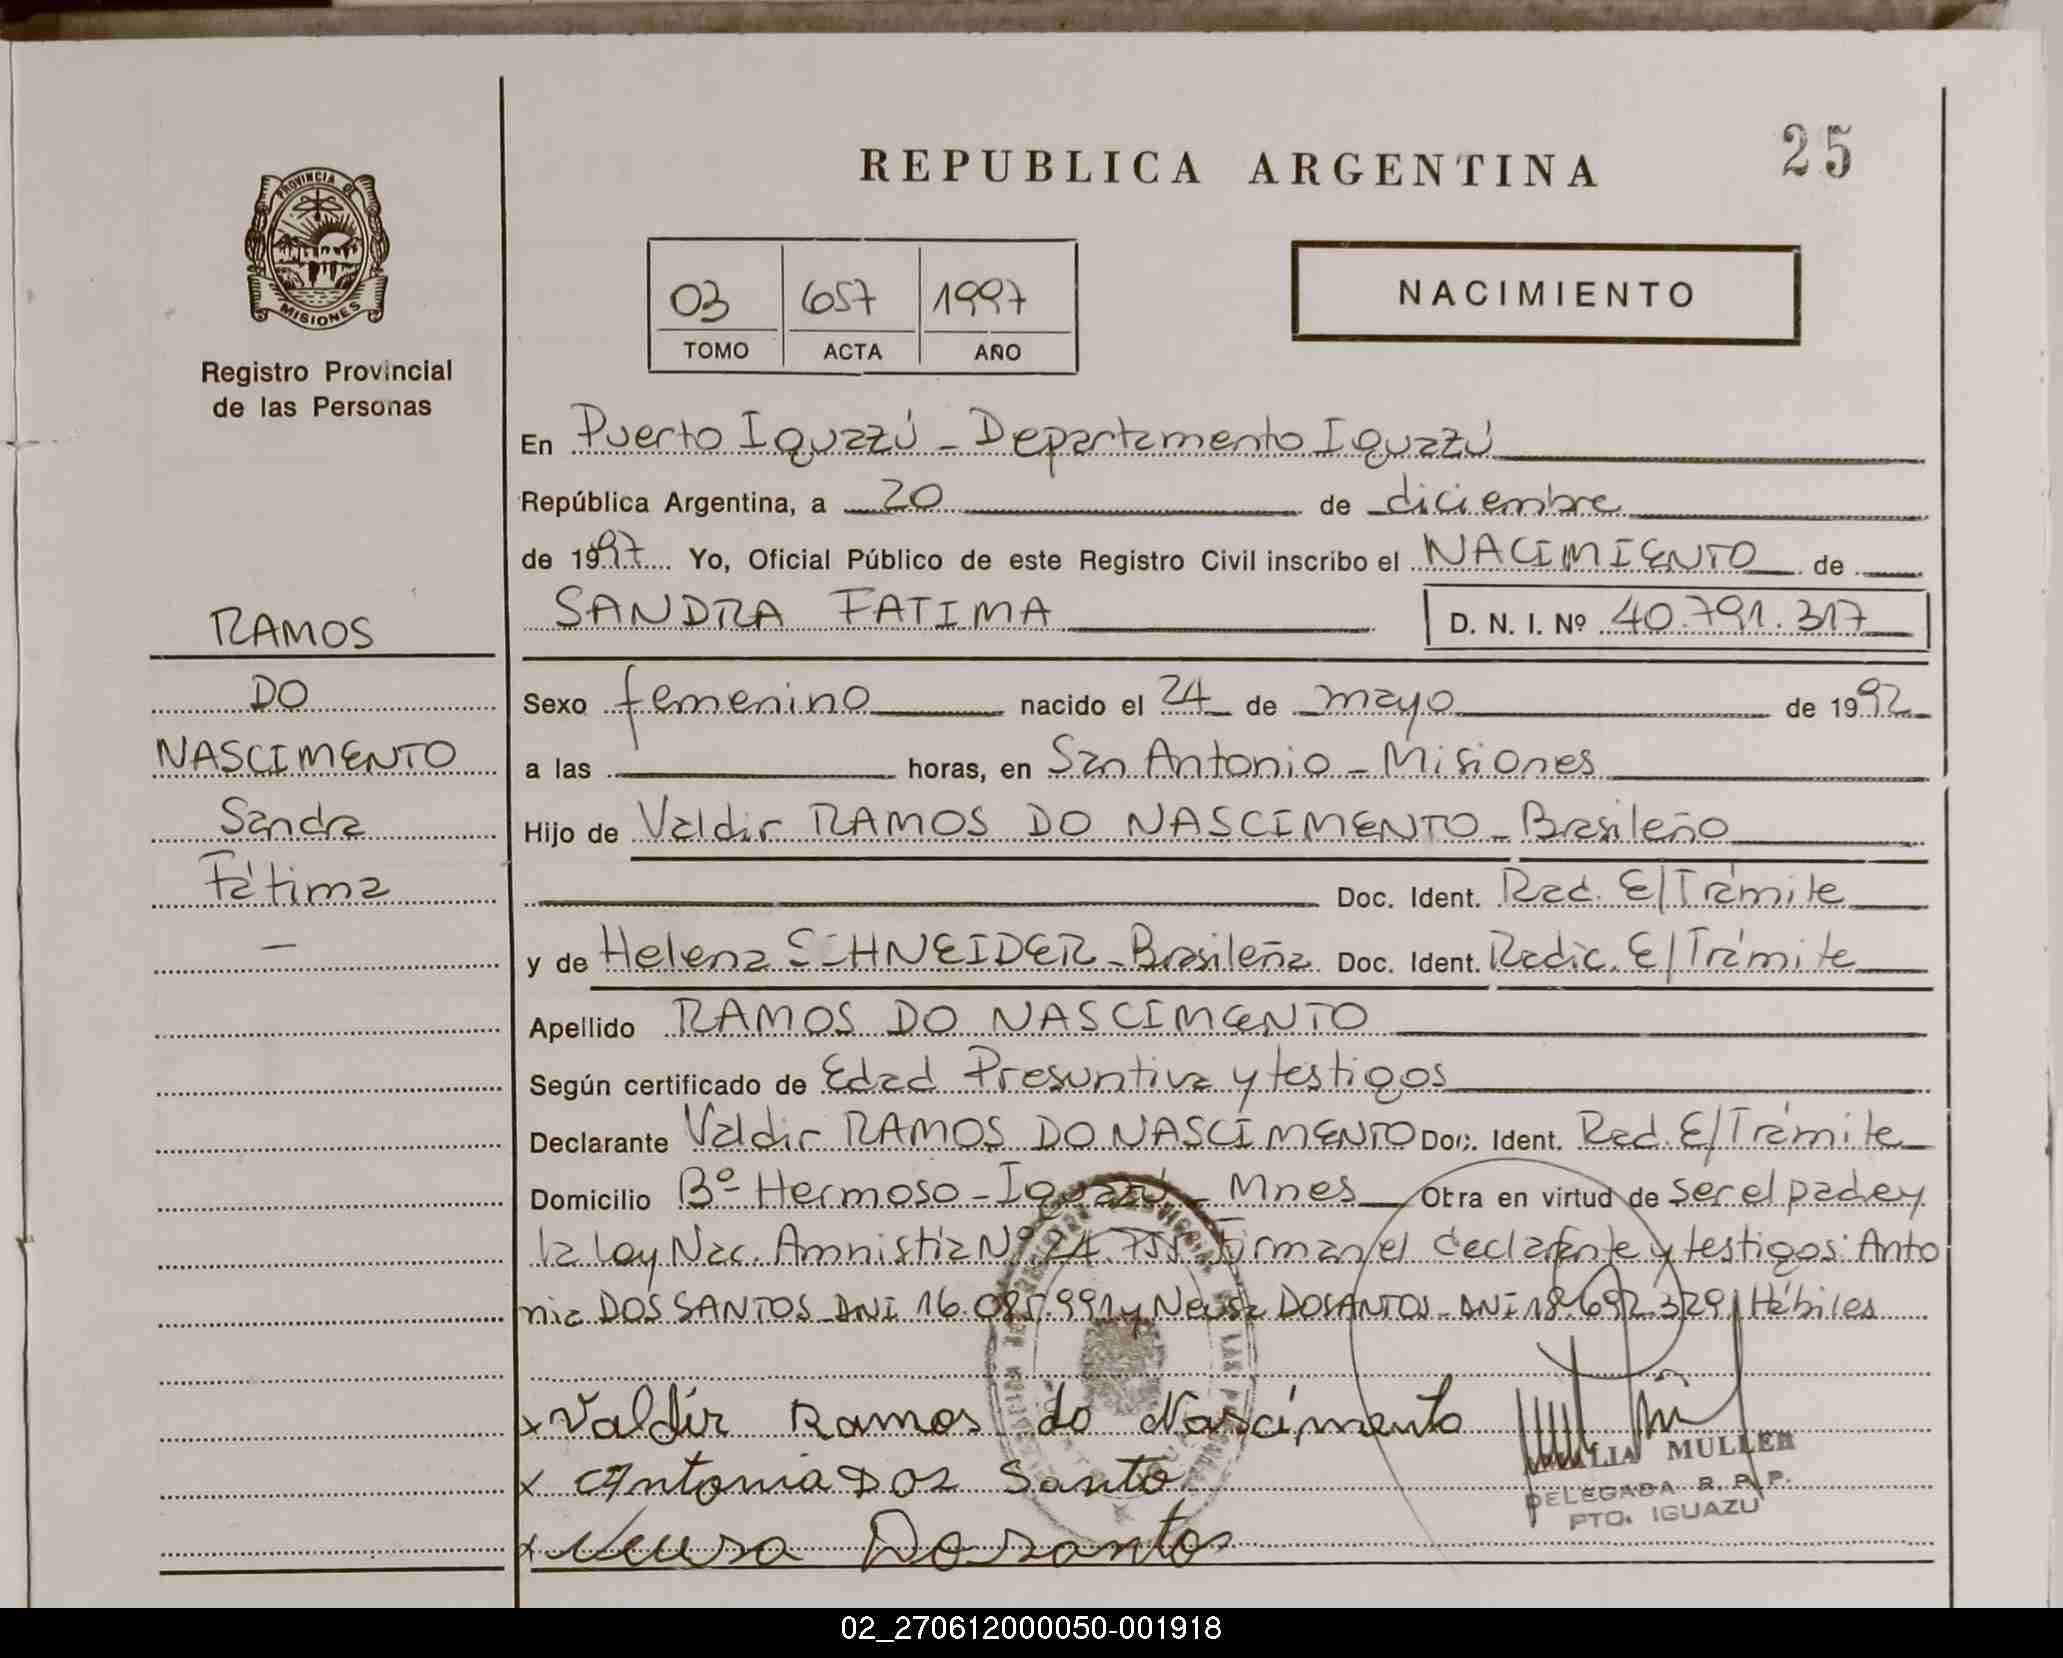 REPUBLICA ARGENTINA
25
PROVINCIA DE
MISIONES
Registro Provincial
de las Personas
03 657 1997
TOMO ACTA AÑO
NACIMIENTO
En Puerto Iguazú - Departamento Iguazú
República Argentina, a 20 de diciembre
de 1997 Yo, Oficial Público de este Registro Civil inscribo el NACIMIENTO de
SANDRA FATIMA D. N. I. Nº 40.791.317
RAMOS
DO
NASCIMENTO
Sandra
Fátima
Sexo femenino nacido el 24 de mayo de 1992
a las horas, en San Antonio - Misiones
Hijo de Valdir RAMOS DO NASCIMENTO - Brasileño
Doc. Ident. Rad. E/Trámite
y de Helena SCHNEIDER - Brasileña Doc. Ident. Radic. E/Trámite
Apellido RAMOS DO NASCIMENTO
Según certificado de Edad Presuntiva y testigos
Declarante Valdir RAMOS DO NASCIMENTO Doc. Ident. Rad. E/Trámite
Domicilio Bº Hermoso - Iguazú - Mnes Otra en virtud de ser el padre y
la Ley Nac. Amnistía Nº 24.755 Firman el declarante y testigos: Anto
nia DOS SANTOS - DNI 16.085.991 y Neusa DOSANTOS - DNI 18.692.329 Hábiles
x Valdir Ramos do Nascimento
x Antonia Dos Santo
x Neusa Dosantos
MULLER
DELEGADA R. P. P.
PTO. IGUAZU
02_270612000050-001918